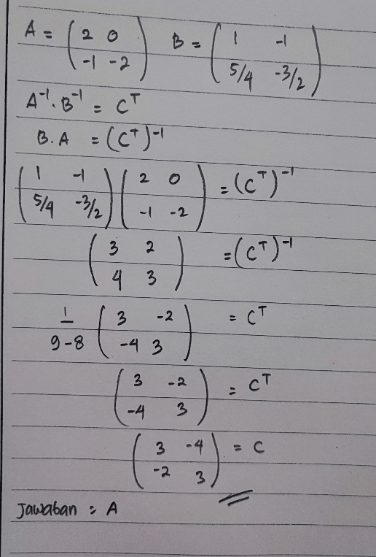 A = ( 2 0 ; -1 -2 ) B = ( 1 -1 ; 5/4 -3/2 )
A⁻¹. B⁻¹ = Cᵀ
B. A = (Cᵀ)⁻¹
( 1 -1 ; 5/4 -3/2 ) ( 2 0 ; -1 -2 ) = (Cᵀ)⁻¹
( 3 2 ; 4 3 ) = (Cᵀ)⁻¹
1/(9-8) ( 3 -2 ; -4 3 ) = Cᵀ
( 3 -2 ; -4 3 ) = Cᵀ
( 3 -4 ; -2 3 ) = C
Jawaban = A